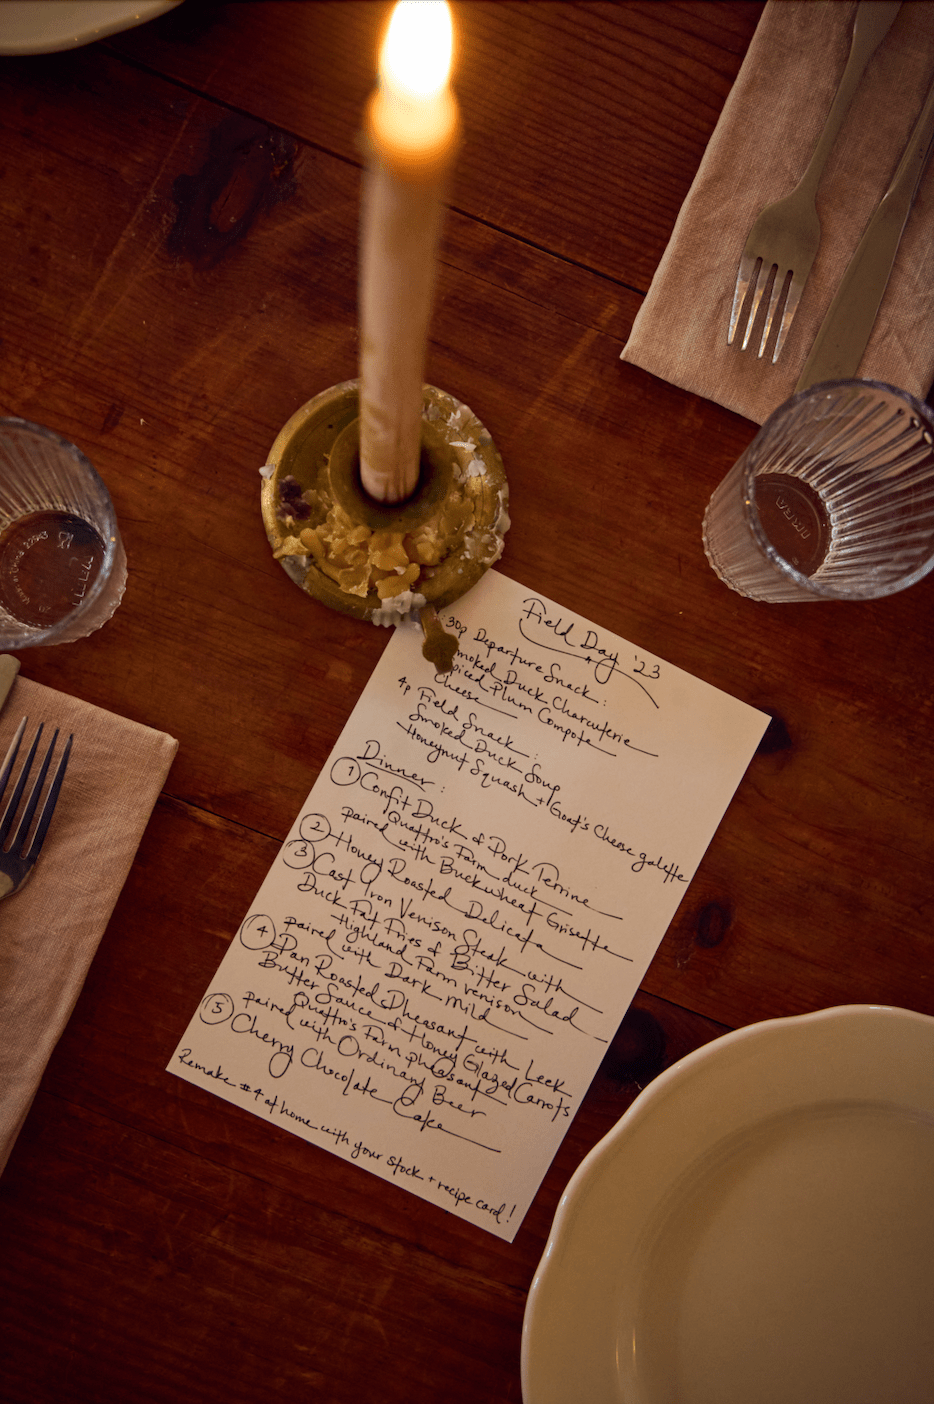 Field Day '23
:30p Departure Snack:
Smoked Duck Charcuterie
Spiced Plum Compote
Cheese
4p Field Snack:
Smoked Duck Soup
Honeynut Squash + Goat's Cheese galette
Dinner:
1 Confit Duck & Pork Terrine
Quattro's Farm duck
paired with Buckwheat Grisette
2 Honey Roasted Delicata
3 Cast Iron Venison Steak with
Duck Fat Fries & Bitter Salad
Highland Farm venison
paired with Dark Mild
4 Pan Roasted Pheasant with Leek
Butter Sauce & Honey Glazed Carrots
Quattro's Farm pheasant
paired with Ordinary Beer
5 Cherry Chocolate Cake
Remake #4 at home with your stock + recipe card!